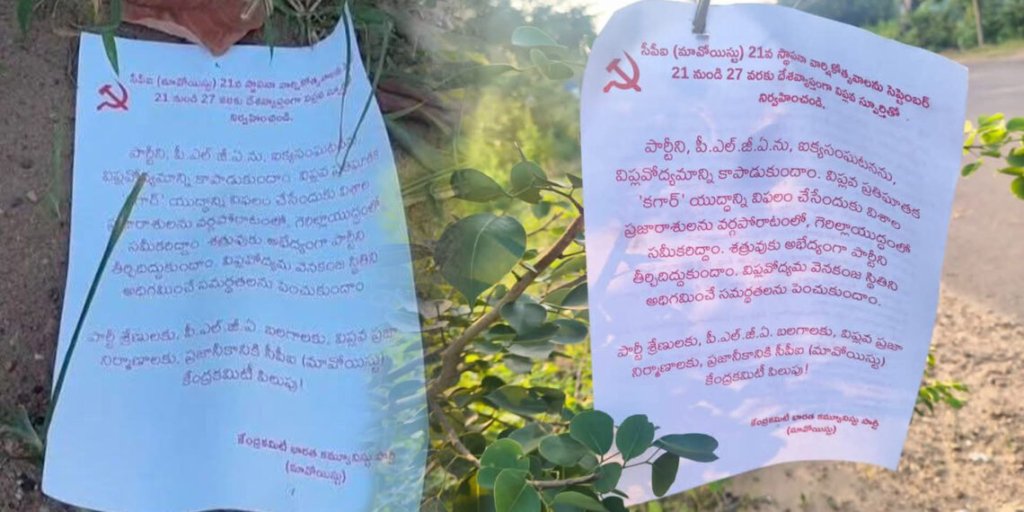 సీపీఐ (మావోయిస్టు) 21వ స్థాపనా వార్షికోత్సవాలను
21 నుండి 27 వరకు దేశవ్యాప్తంగా విప్లవ
నిర్వహించండి.
పార్టీని, పీ.ఎల్.జీ.ఏ.ను, ఐక్యసంఘటనను,
విప్లవోద్యమాన్ని కాపాడుకుందాం. విప్లవ ప్రతిఘాతక
'కగార్' యుద్ధాన్ని విఫలం చేసేందుకు విశాల
ప్రజారాశులను వర్గపోరాటంలో, గెరిల్లాయుద్ధంలో
సమీకరిద్దాం. శత్రువుకు అభేద్యంగా పార్టీని
తీర్చిదిద్దుకుందాం. విప్లవోద్యమ వెనకంజ స్థితిని
అధిగమించే సమర్థతలను పెంచుకుందాం
పార్టీ శ్రేణులకు, పీ.ఎల్.జీ.ఏ. బలగాలకు, విప్లవ ప్రజా
నిర్మాణాలకు, ప్రజానీకానికి సీపీఐ (మావోయిస్టు)
కేంద్రకమిటీ పిలుపు!
కేంద్రకమిటీ భారత కమ్యూనిస్టు పార్టీ
(మావోయిస్టు)
సీపీఐ (మావోయిస్టు) 21వ స్థాపనా వార్షికోత్సవాలను సెప్టెంబర్
21 నుండి 27 వరకు దేశవ్యాప్తంగా విప్లవ స్ఫూర్తితో
నిర్వహించండి.
పార్టీని, పీ.ఎల్.జీ.ఏ.ను, ఐక్యసంఘటనను,
విప్లవోద్యమాన్ని కాపాడుకుందాం. విప్లవ ప్రతిఘాతక
'కగార్' యుద్ధాన్ని విఫలం చేసేందుకు విశాల
ప్రజారాశులను వర్గపోరాటంలో, గెరిల్లాయుద్ధంలో
సమీకరిద్దాం. శత్రువుకు అభేద్యంగా పార్టీని
తీర్చిదిద్దుకుందాం. విప్లవోద్యమ వెనకంజ స్థితిని
అధిగమించే సమర్థతలను పెంచుకుందాం.
పార్టీ శ్రేణులకు, పీ.ఎల్.జీ.ఏ. బలగాలకు, విప్లవ ప్రజా
నిర్మాణాలకు, ప్రజానీకానికి సీపీఐ (మావోయిస్టు)
కేంద్రకమిటీ పిలుపు!
కేంద్రకమిటీ భారత కమ్యూనిస్టు పార్టీ
(మావోయిస్టు)